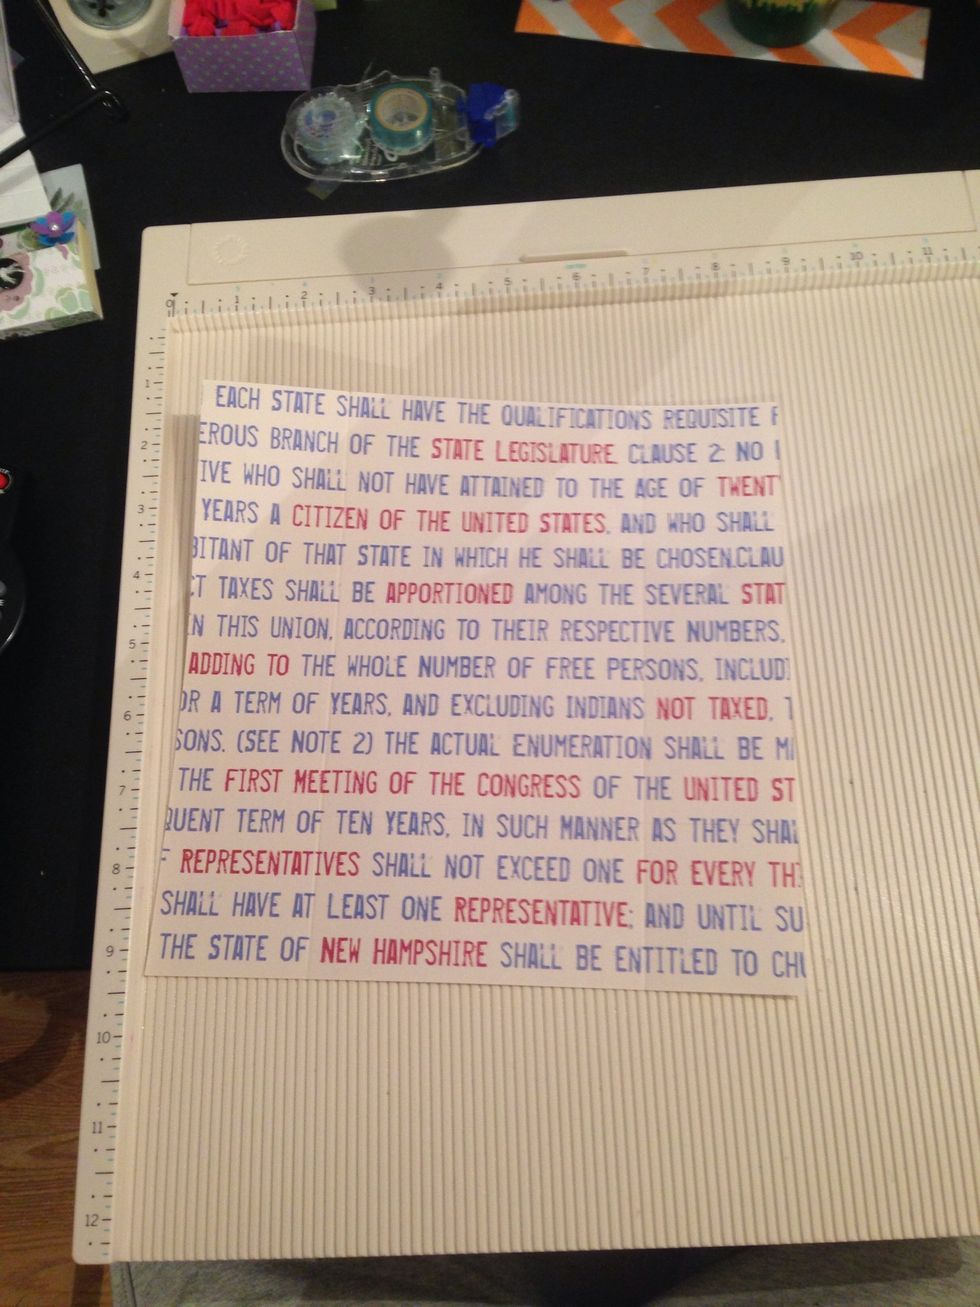 0 1 2 3 4 5 6 7 8 9 10 11
center
EACH STATE SHALL HAVE THE QUALIFICATIONS REQUISITE F
EROUS BRANCH OF THE STATE LEGISLATURE. CLAUSE 2: NO
IVE WHO SHALL NOT HAVE ATTAINED TO THE AGE OF TWENT
YEARS A CITIZEN OF THE UNITED STATES, AND WHO SHALL
BITANT OF THAT STATE IN WHICH HE SHALL BE CHOSEN.CLAU
CT TAXES SHALL BE APPORTIONED AMONG THE SEVERAL STAT
IN THIS UNION, ACCORDING TO THEIR RESPECTIVE NUMBERS,
ADDING TO THE WHOLE NUMBER OF FREE PERSONS, INCLUDI
OR A TERM OF YEARS, AND EXCLUDING INDIANS NOT TAXED, T
SONS. (SEE NOTE 2) THE ACTUAL ENUMERATION SHALL BE MA
THE FIRST MEETING OF THE CONGRESS OF THE UNITED ST
QUENT TERM OF TEN YEARS, IN SUCH MANNER AS THEY SHAL
F REPRESENTATIVES SHALL NOT EXCEED ONE FOR EVERY THI
SHALL HAVE AT LEAST ONE REPRESENTATIVE; AND UNTIL SU
THE STATE OF NEW HAMPSHIRE SHALL BE ENTITLED TO CHU
1
2
3
4
5
6
7
8
9
10
11
12